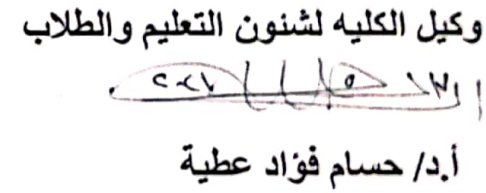 وكيل الكليه لشئون التعليم والطلاب
أ.د/ حسام فؤاد عطية